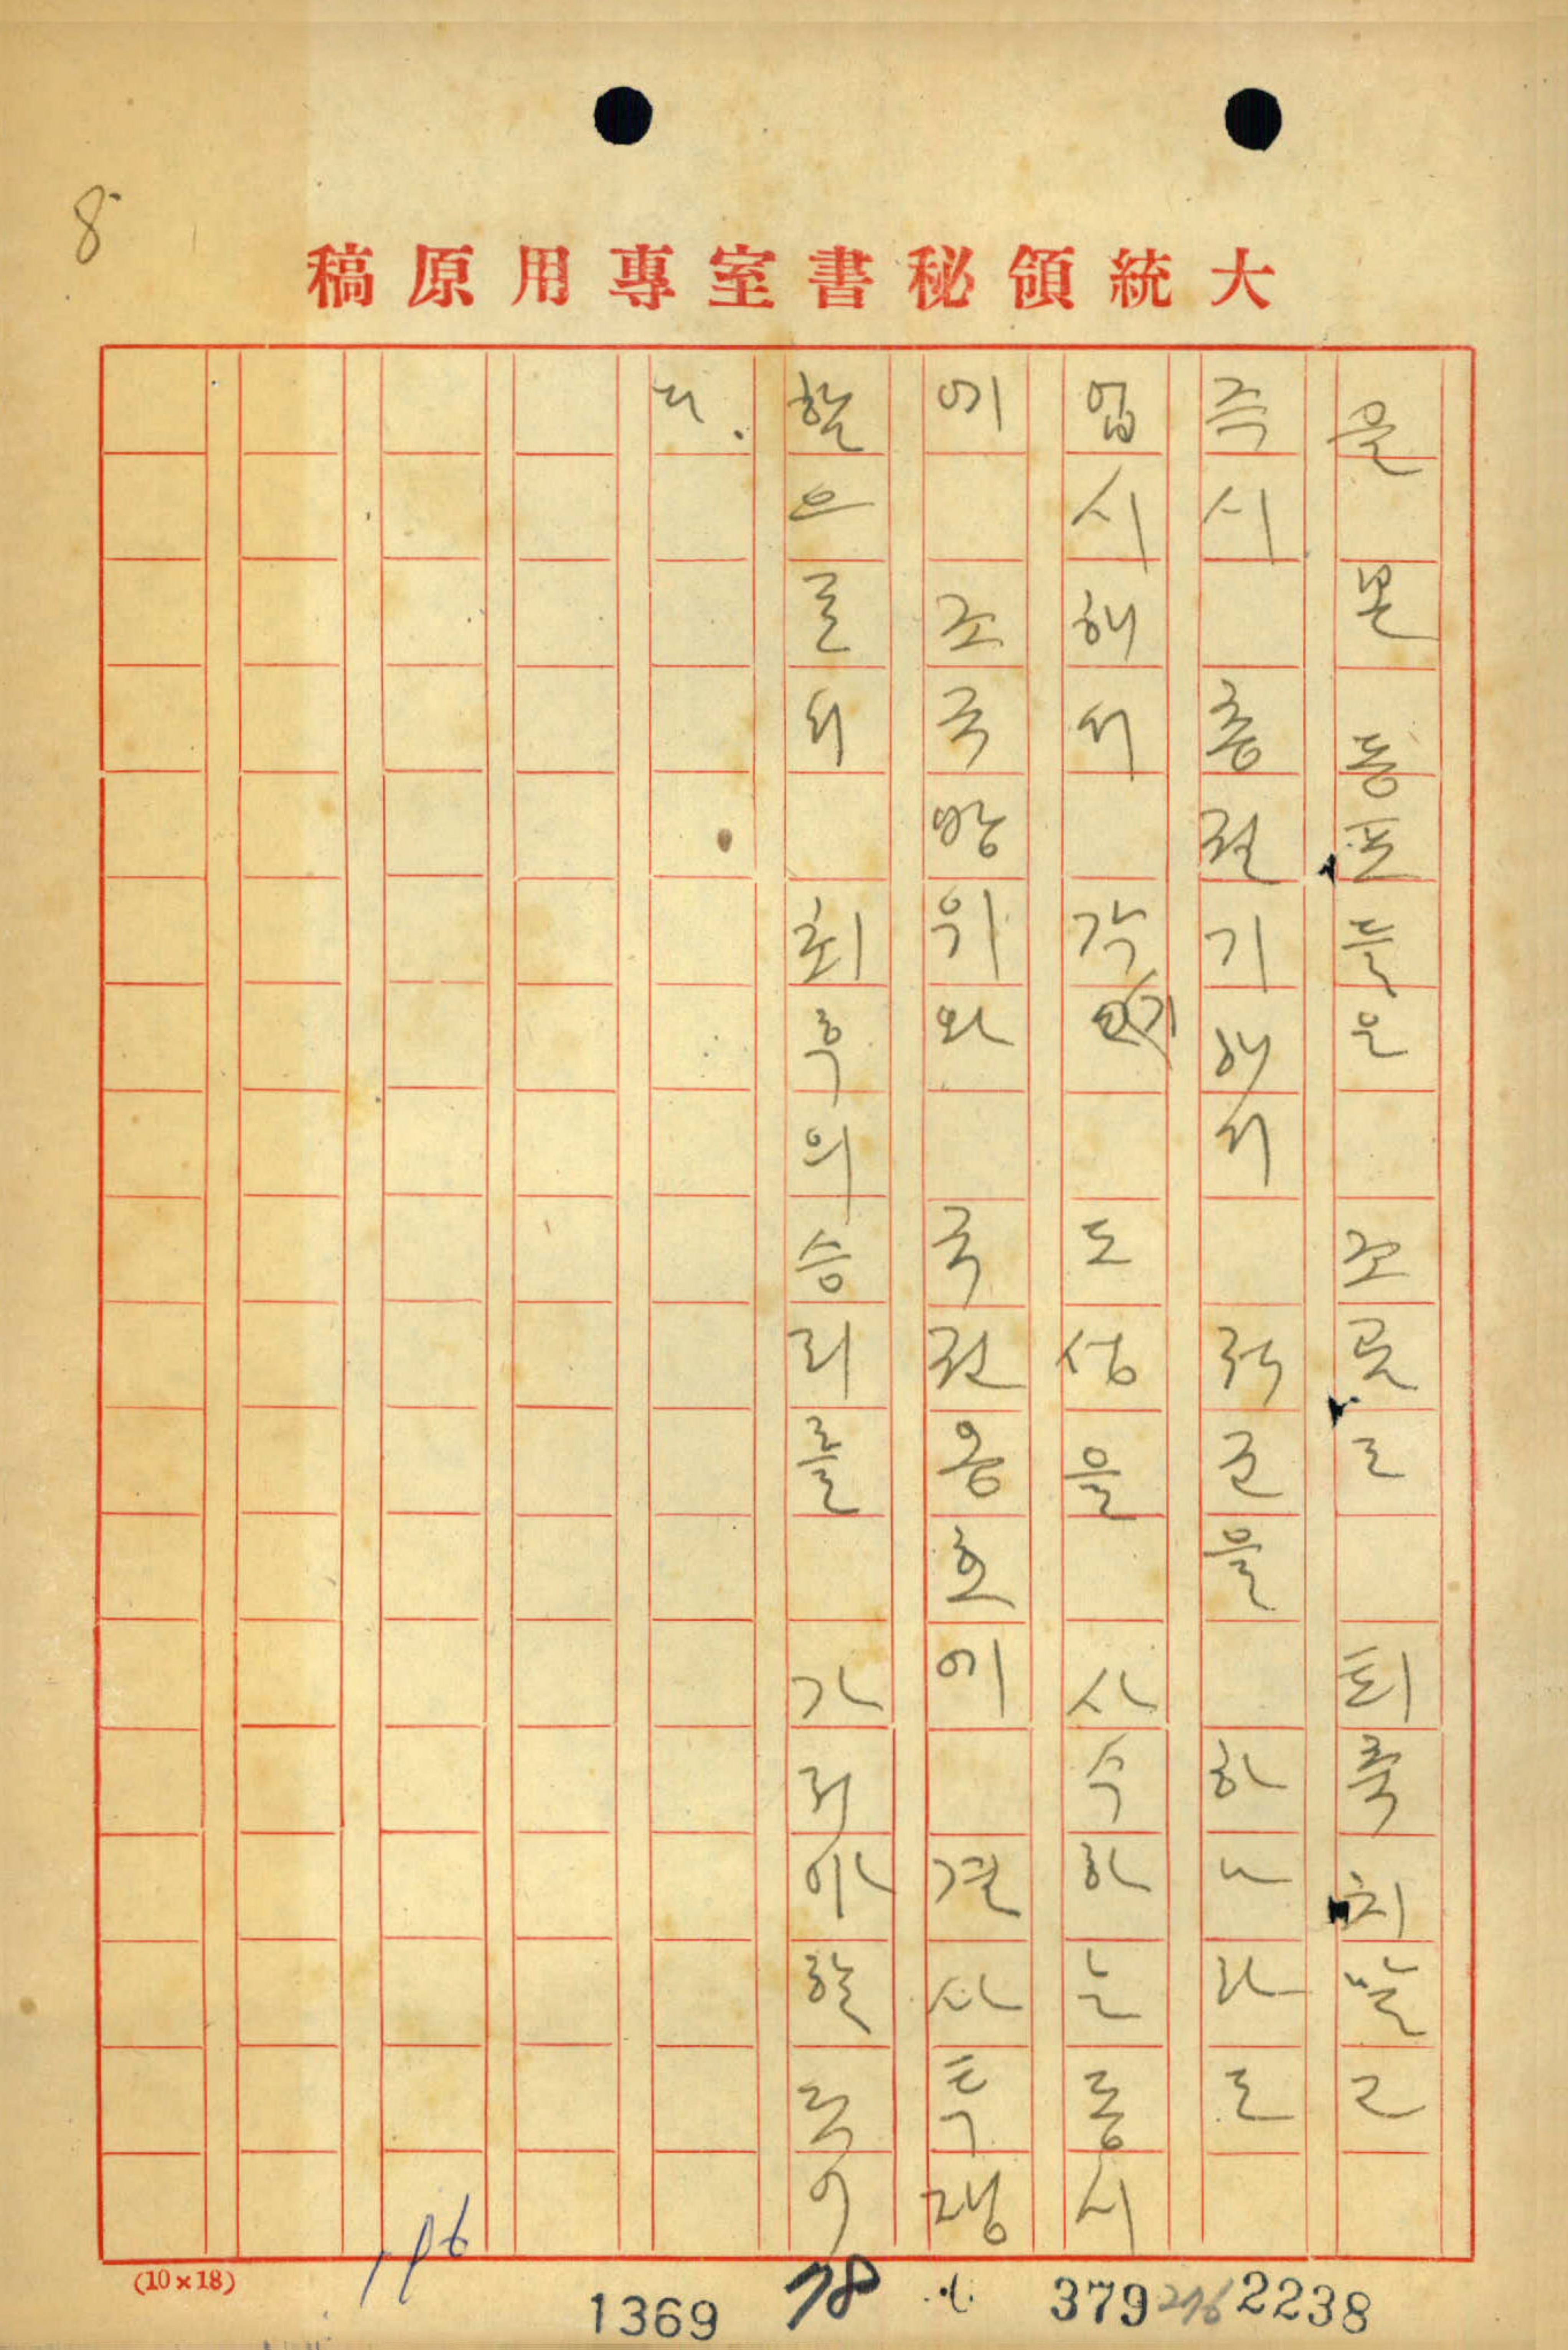 大統領秘書室專用原稿
8
을 본 동포들은 조곰도 퇴축치말고
즉시 총궐기해서 적군을 하나라도
업시해서 각기 도성을 사수하는동시
에 조국방위와 국권옹호에 결사투쟁
함으로서 최후의승리를 가저야할것이
다.
(10×18)
196
1369
78
379
276
2238